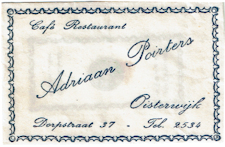 Café Restaurant
Adriaan Poirters
Oisterwijk
Dorpstraat 37 - Tel. 2534